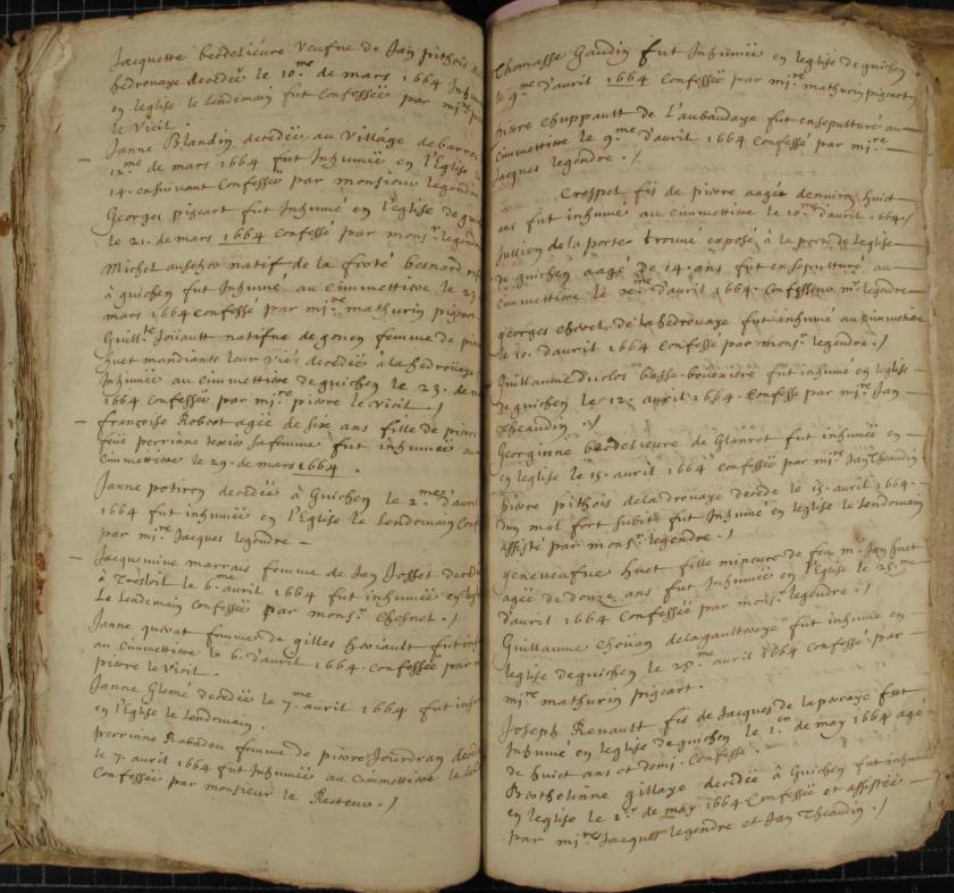 Jacquette berdelieure veufue de Jan pithois
hedrouaye decedëe le 10.me de mars 1664
en leglise le Lendemain fut Confessëe par mi.re
le Vicil.
Janne Blandin decedëe au Village de
12.me de mars 1664 fut Inhumëe en l'Eglise
14. ensuiuant Confessëe par monsieur legendre
Georges pigeart fut Inhumé en l'eglise de
le 21. de mars 1664 Confessé par mons.r legendre
Michel natif de la froté besnard
à guichen fut Inhumé au Cimmettiere le 23
mars 1664 Confessé par mi.re mathurin pigeart
Guill.te Jouautt natifue de gouen femme de
mandiants leur Vie, decedëe à la hedrouaye
Inhumëe au Cimmettiere de guichen le 23. de
1664 Confessëe par mi.re pierre le Vicil./
francoise Robert agëe de six ans fille de pierre
feüe perrinne sa femme fut inhumëe au
Cimmettiere le 29. de mars 1664.
Janne potiron decedëe à Guichen le 2.me d'auril
1664 fut inhumëe en l'Eglise le Lendemain
par mi.re Jacques legendre —
Jacquemine marrais femme de Jan Josset
à le 6.me auril 1664 fut inhumëe en
Le Lendemain Confessëe par mons.r Chesnel./
Janne femme de gilles fut
au Cimmettiere le 6. d'auril 1664. Confessëe par
pierre le Vicil.
Janne Glemé decedëe le 7.me auril 1664 fut
en l'Eglise le Lendemain.
perrinne femme de pierre Jourdran
le 7. auril 1664 fut Inhumëe au Cimmettiere le
Confessëe par monsieur le Recteur./
Thomasse Gaudin fut Inhumëe en leglise de guichen
le 9.me d'auril 1664 Confessëe par mi.re mathurin pigeart
pierre Chuppault de L'aubaudaye fut ensepulturé au
Cimmettiere le 9.me d'auril 1664 Confessé par mi.re
Jacques legendre./
Crespel fis de pierre aagée denuiron huict
ans fut inhumé au Cimmettiere le 10.me d'auril 1664/
Jullien de la porte trouué exposé à la porte de Leglise
de guichen aagé de 14. ans fut ensepulturé au
Cimmettiere le d'auril 1664. m.re legendre
georges de la hedrouaye fut inhumé au Cimmetiere
le 10. dauril 1664 Confessé par mons.r legendre./
Guillaume duclos basse-bouexiere fut inhumé en leglise
de guichen le 12. auril 1664. Confessé par mi.re Jan
Theaudin./
Georginne berdelieure de Glanret fut inhumëe en
en leglise le 15. auril 1664 Confessëe par mi.re Jan Theaudin
pierre pithois dela drouaye decede le 15. auril 1664.
dun mal fort subit fut Inhumé en leglise le Lendemain
assisté par mons.r legendre./
geneuefue huet fille mineure de feu m. Jan huet
agëe de douze ans fut Inhumëe en l'Eglise le 25.me
d'auril 1664 Confessëe par mons.r legendre./
Guillaume Chouan dela gaultraye fut inhumé en
leglise de guichen le 28.me auril 1664 Confessé par
mi.re mathurin pigeart.
Joseph Renault fis de Jacques de la fut
Inhumé en leglise de guichen le 1.er de may 1664 agé
de huict ans et demi. Confessé.
Berthelinne gillaye decedëe à Guichen fut inhumëe
en leglise le 2. de may 1664 Confessëe et assistëe
par mi.res Jacques legendre et Jan Theaudin./